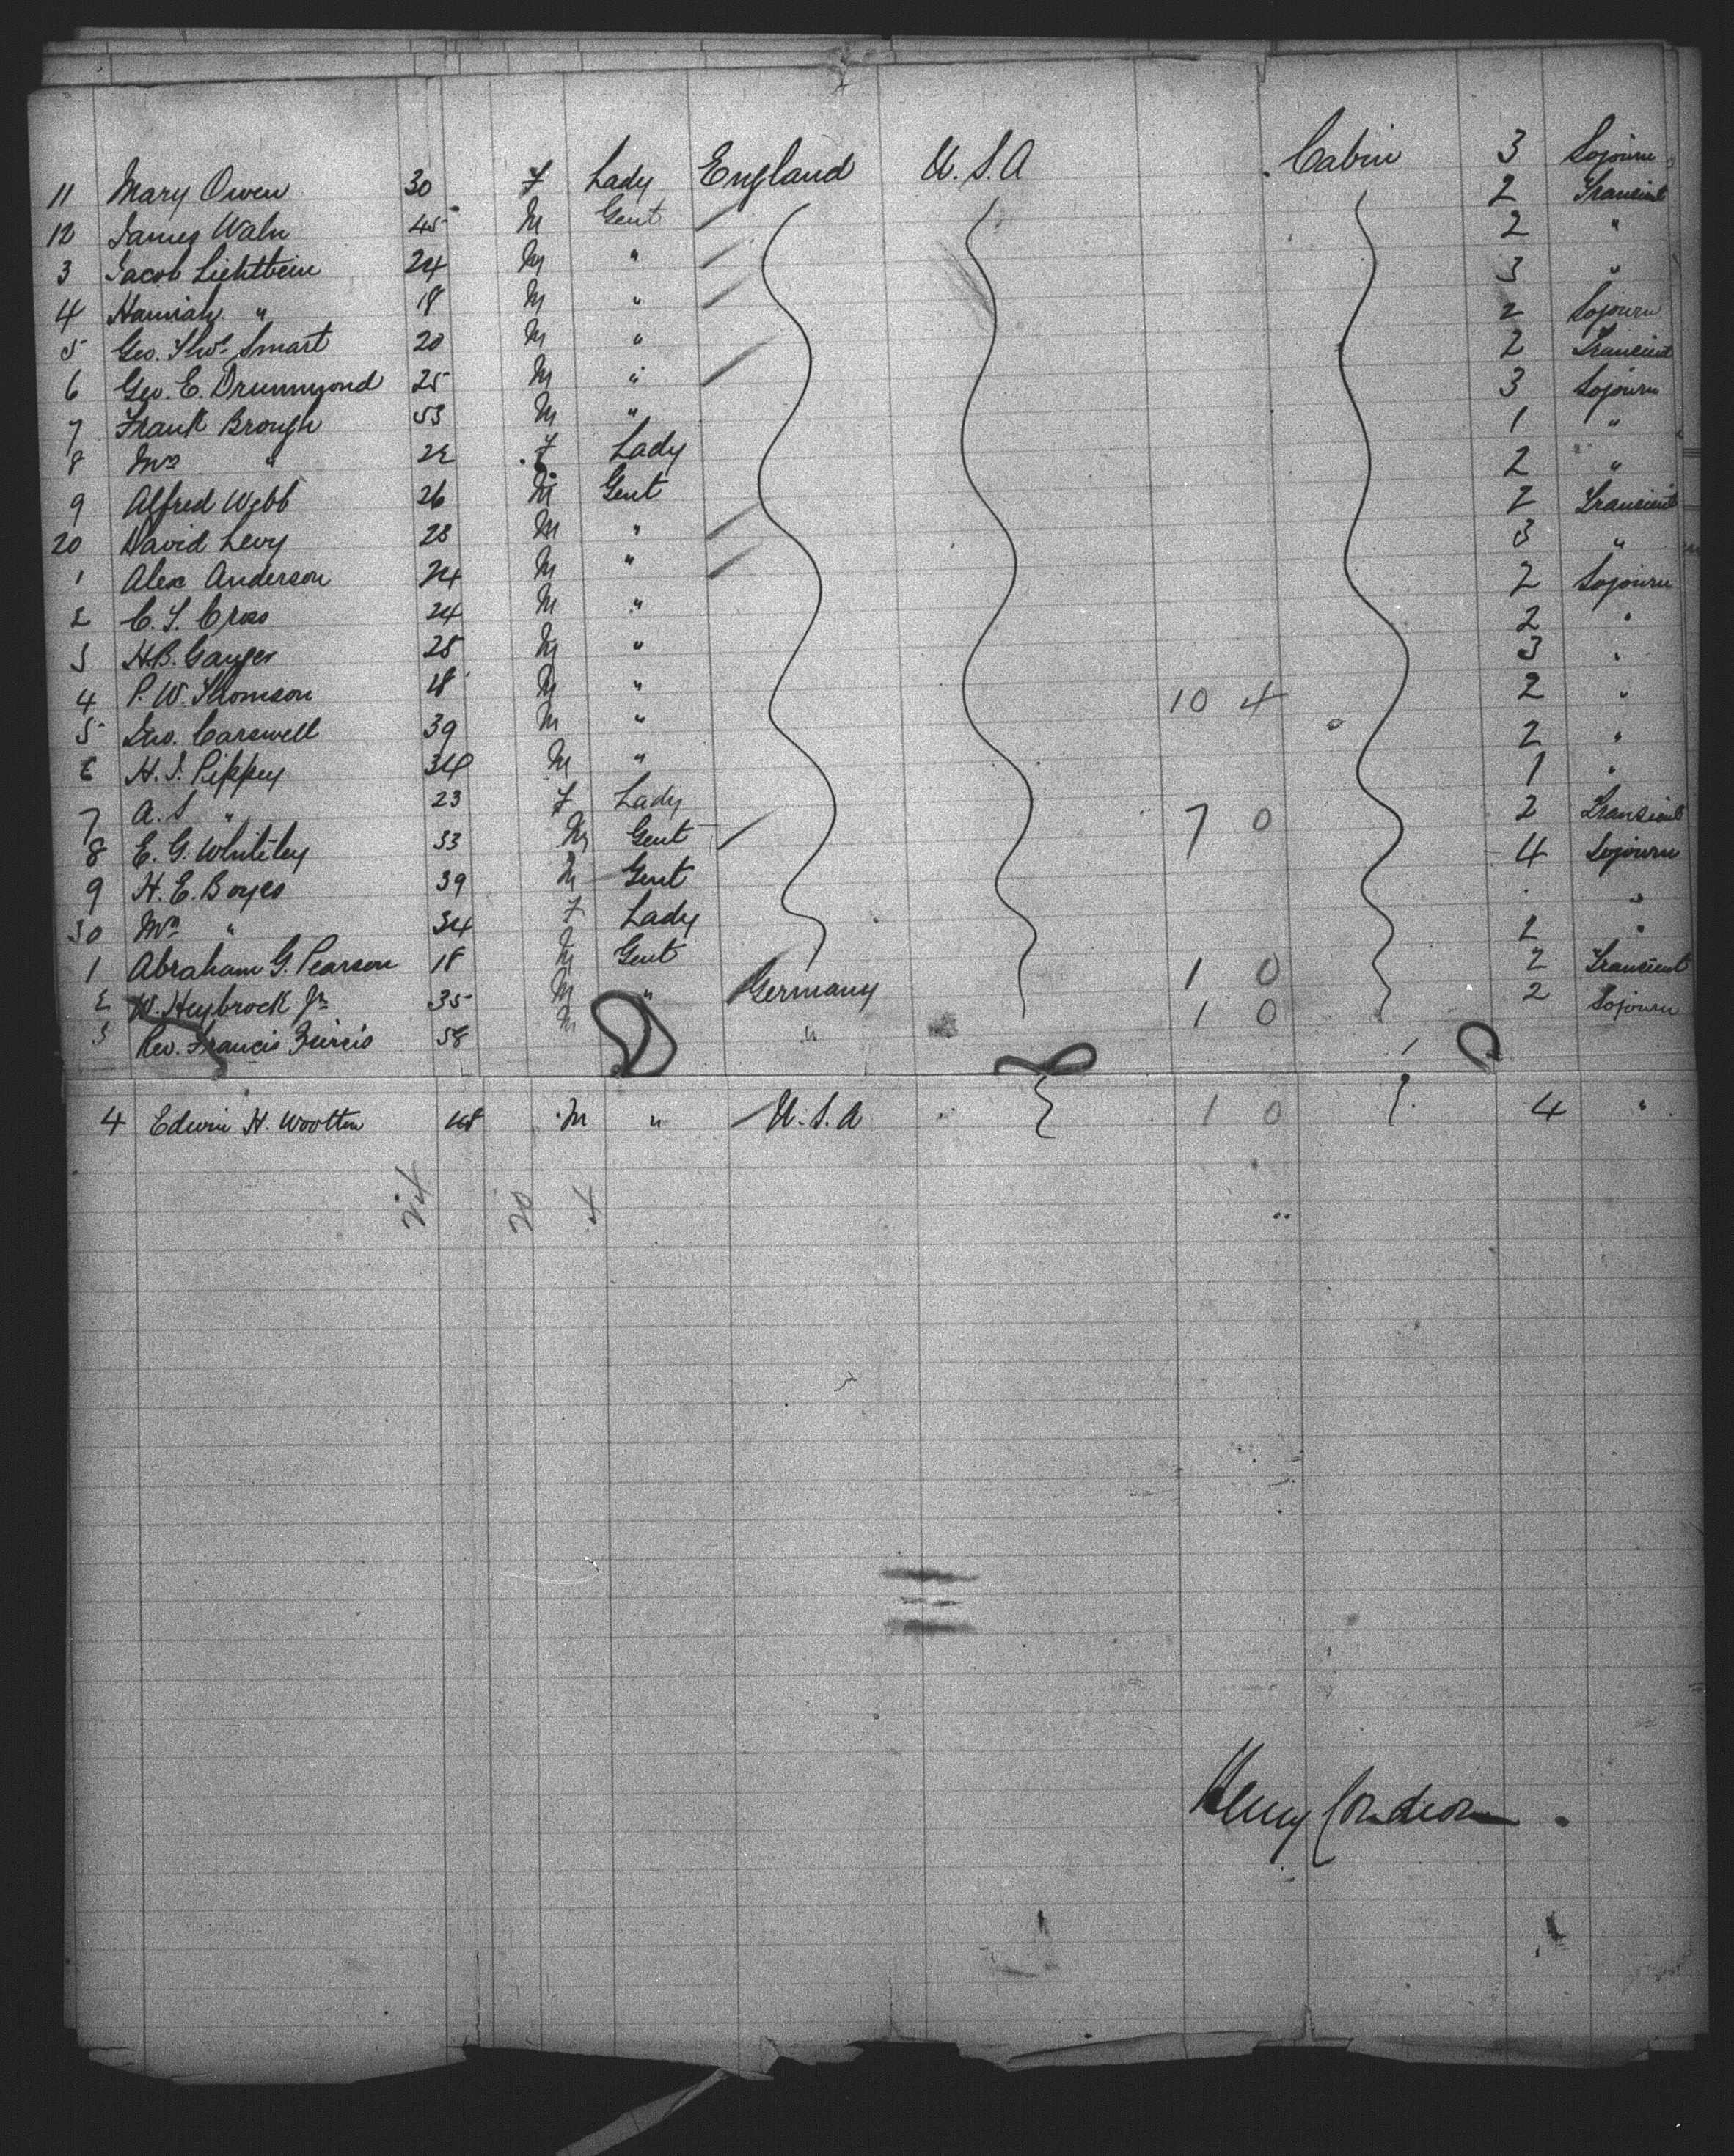 11 Mary Owen 30 F Lady England U.S.A Cabin 3 Sojourn
12 James Waln 45 M Gent 2 Transient
3 Jacob Lichtbein 24 M " 2 "
4 Hannah " 18 M " 3 "
5 Geo. Thos. Smart 20 M " 2 Sojourn
6 Geo. E. Drummond 25 M " 2 Transient
7 Frank Brough 53 M " 3 Sojourn
8 Mrs " F Lady 1 "
9 Alfred Webb 26 M Gent 2 "
20 David Levy 23 M " 2 Transient
1 Alex Anderson 24 M " 3 "
2 C. T. Cross 24 M " 2 Sojourn
3 H.B. 25 M " 2 "
4 P. W. Thomson 18 M " 3 "
5 Jno. Carswell 39 M " 10 4 2 "
6 H. J. Pippey 34 M " 2 "
7 A. S " 23 F Lady 1 "
8 E. G. Whiteley 33 M Gent 7 0 2 Transient
9 H. E. Boyes 39 M Gent 4 Sojourn
30 Mrs " 34 F Lady "
1 Abraham G. Pearson 18 M Gent 2 "
2 W. Heybrock Jr 35 M " Germany 1 0 2 Transient
3 Rev. Francis 58 M " 1 0 2 Sojourn
4 Edwin H. Wootten 48 M " U.S.A 1 0 4 "
24 20 4
Henry